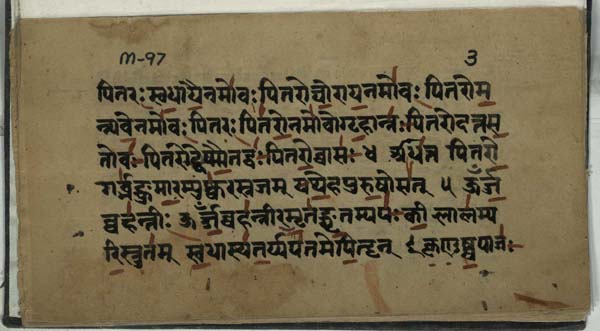 M-97 3
पितरः स्वधायै नमो वः पितरो घोराय नमो वः पितरो म
न्यवे नमो वः पितरः पितरो नमो वो गृहान्नः पितरो दत्त स
तो वः पितरो देष्मैतद्वः पितरो वासः ४ आधत्त पितरो
गर्भङ्कुमारम्पुष्करस्रजम् यथेह पुरुषोसत् ५ ऊर्ज्ज
व्वहन्तीः ऊर्ज्जंव्वहन्तीरमृतङ्घृतम्पयः कीलालम्प
रिस्रुतम् स्वधास्थतर्प्पयतमेपितॄन्